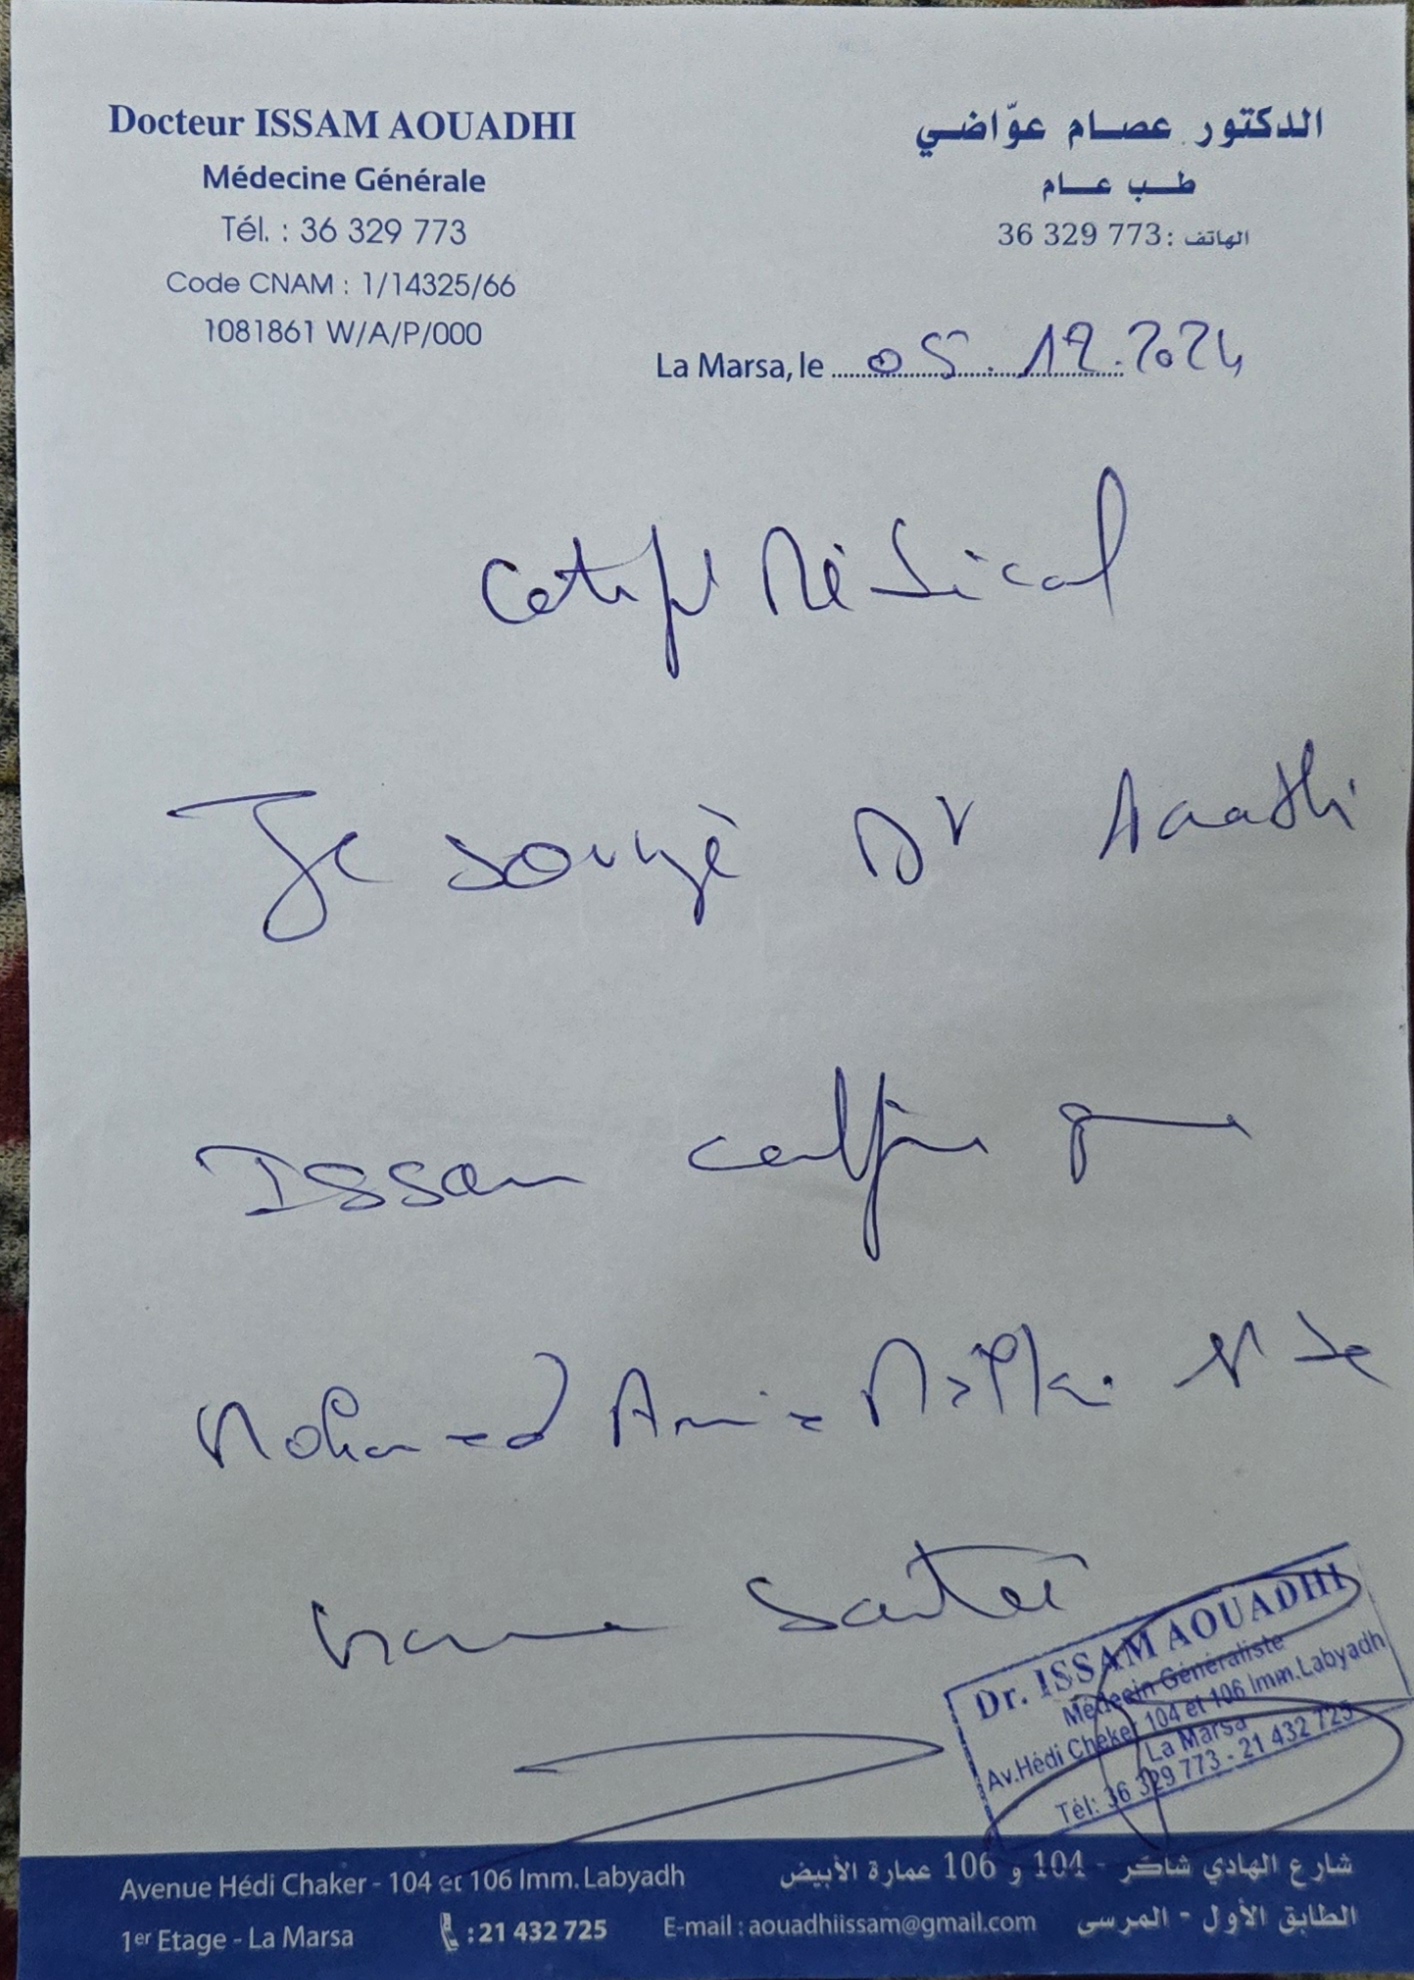 Docteur ISSAM AOUADHI
Médecine Générale
Tél. : 36 329 773
Code CNAM : 1/14325/66
1081861 W/A/P/000
الدكتور عصام عوّاضي
طب عام
الهاتف : 36 329 773
La Marsa, le 05.12.2024
Certif Médical
Je sousigé Dr Aouadhi
Issam certifie que
Mohamed Amine est de
bonne Santé
Dr. ISSAM AOUADHI
Médecin Généraliste
Av.Hédi Cheker 104 et 106 Imm.Labyadh
La Marsa
Tél: 36 329 773 - 21 432 725
Avenue Hédi Chaker - 104 et 106 Imm. Labyadh
1er Etage - La Marsa : 21 432 725 E-mail : aouadhiissam@gmail.com
شارع الهادي شاكر - 104 و 106 عمارة الأبيض
الطابق الأول - المرسى